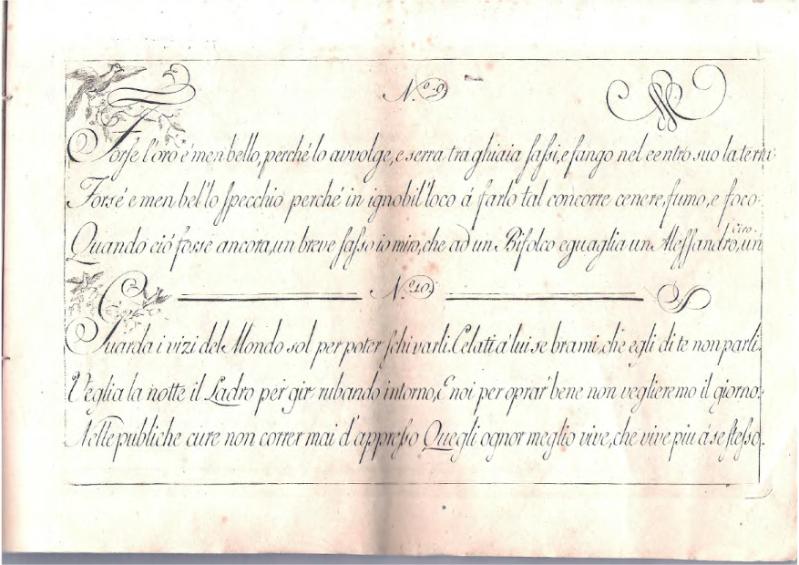 N.º 9
Forse l'oro é men bello, perché lo avvolge, e serra tra ghiaia sassi, e fango nel centro suo la terra
Forsé e men bel'lo specchio perché in ignobil'loco á farlo tal concorre cenere, fumo, e foco.
Quando ció fosse ancora, un breve sasso io miro, che ad un Bifolco eguaglia un Alessandro, un Ciro.
N.º 10
Guarda i vizi del Mondo sol per poter schivarli. Celati á lui se brami, che egli di te non parli.
Veglia la notte il Ladro per gir rubando intorno, E noi per oprar bene non veglieremo il giorno.
Nelle publiche cure non correr mai d'appresso Quegli ognor meglio vive, che vive piu á se stesso.